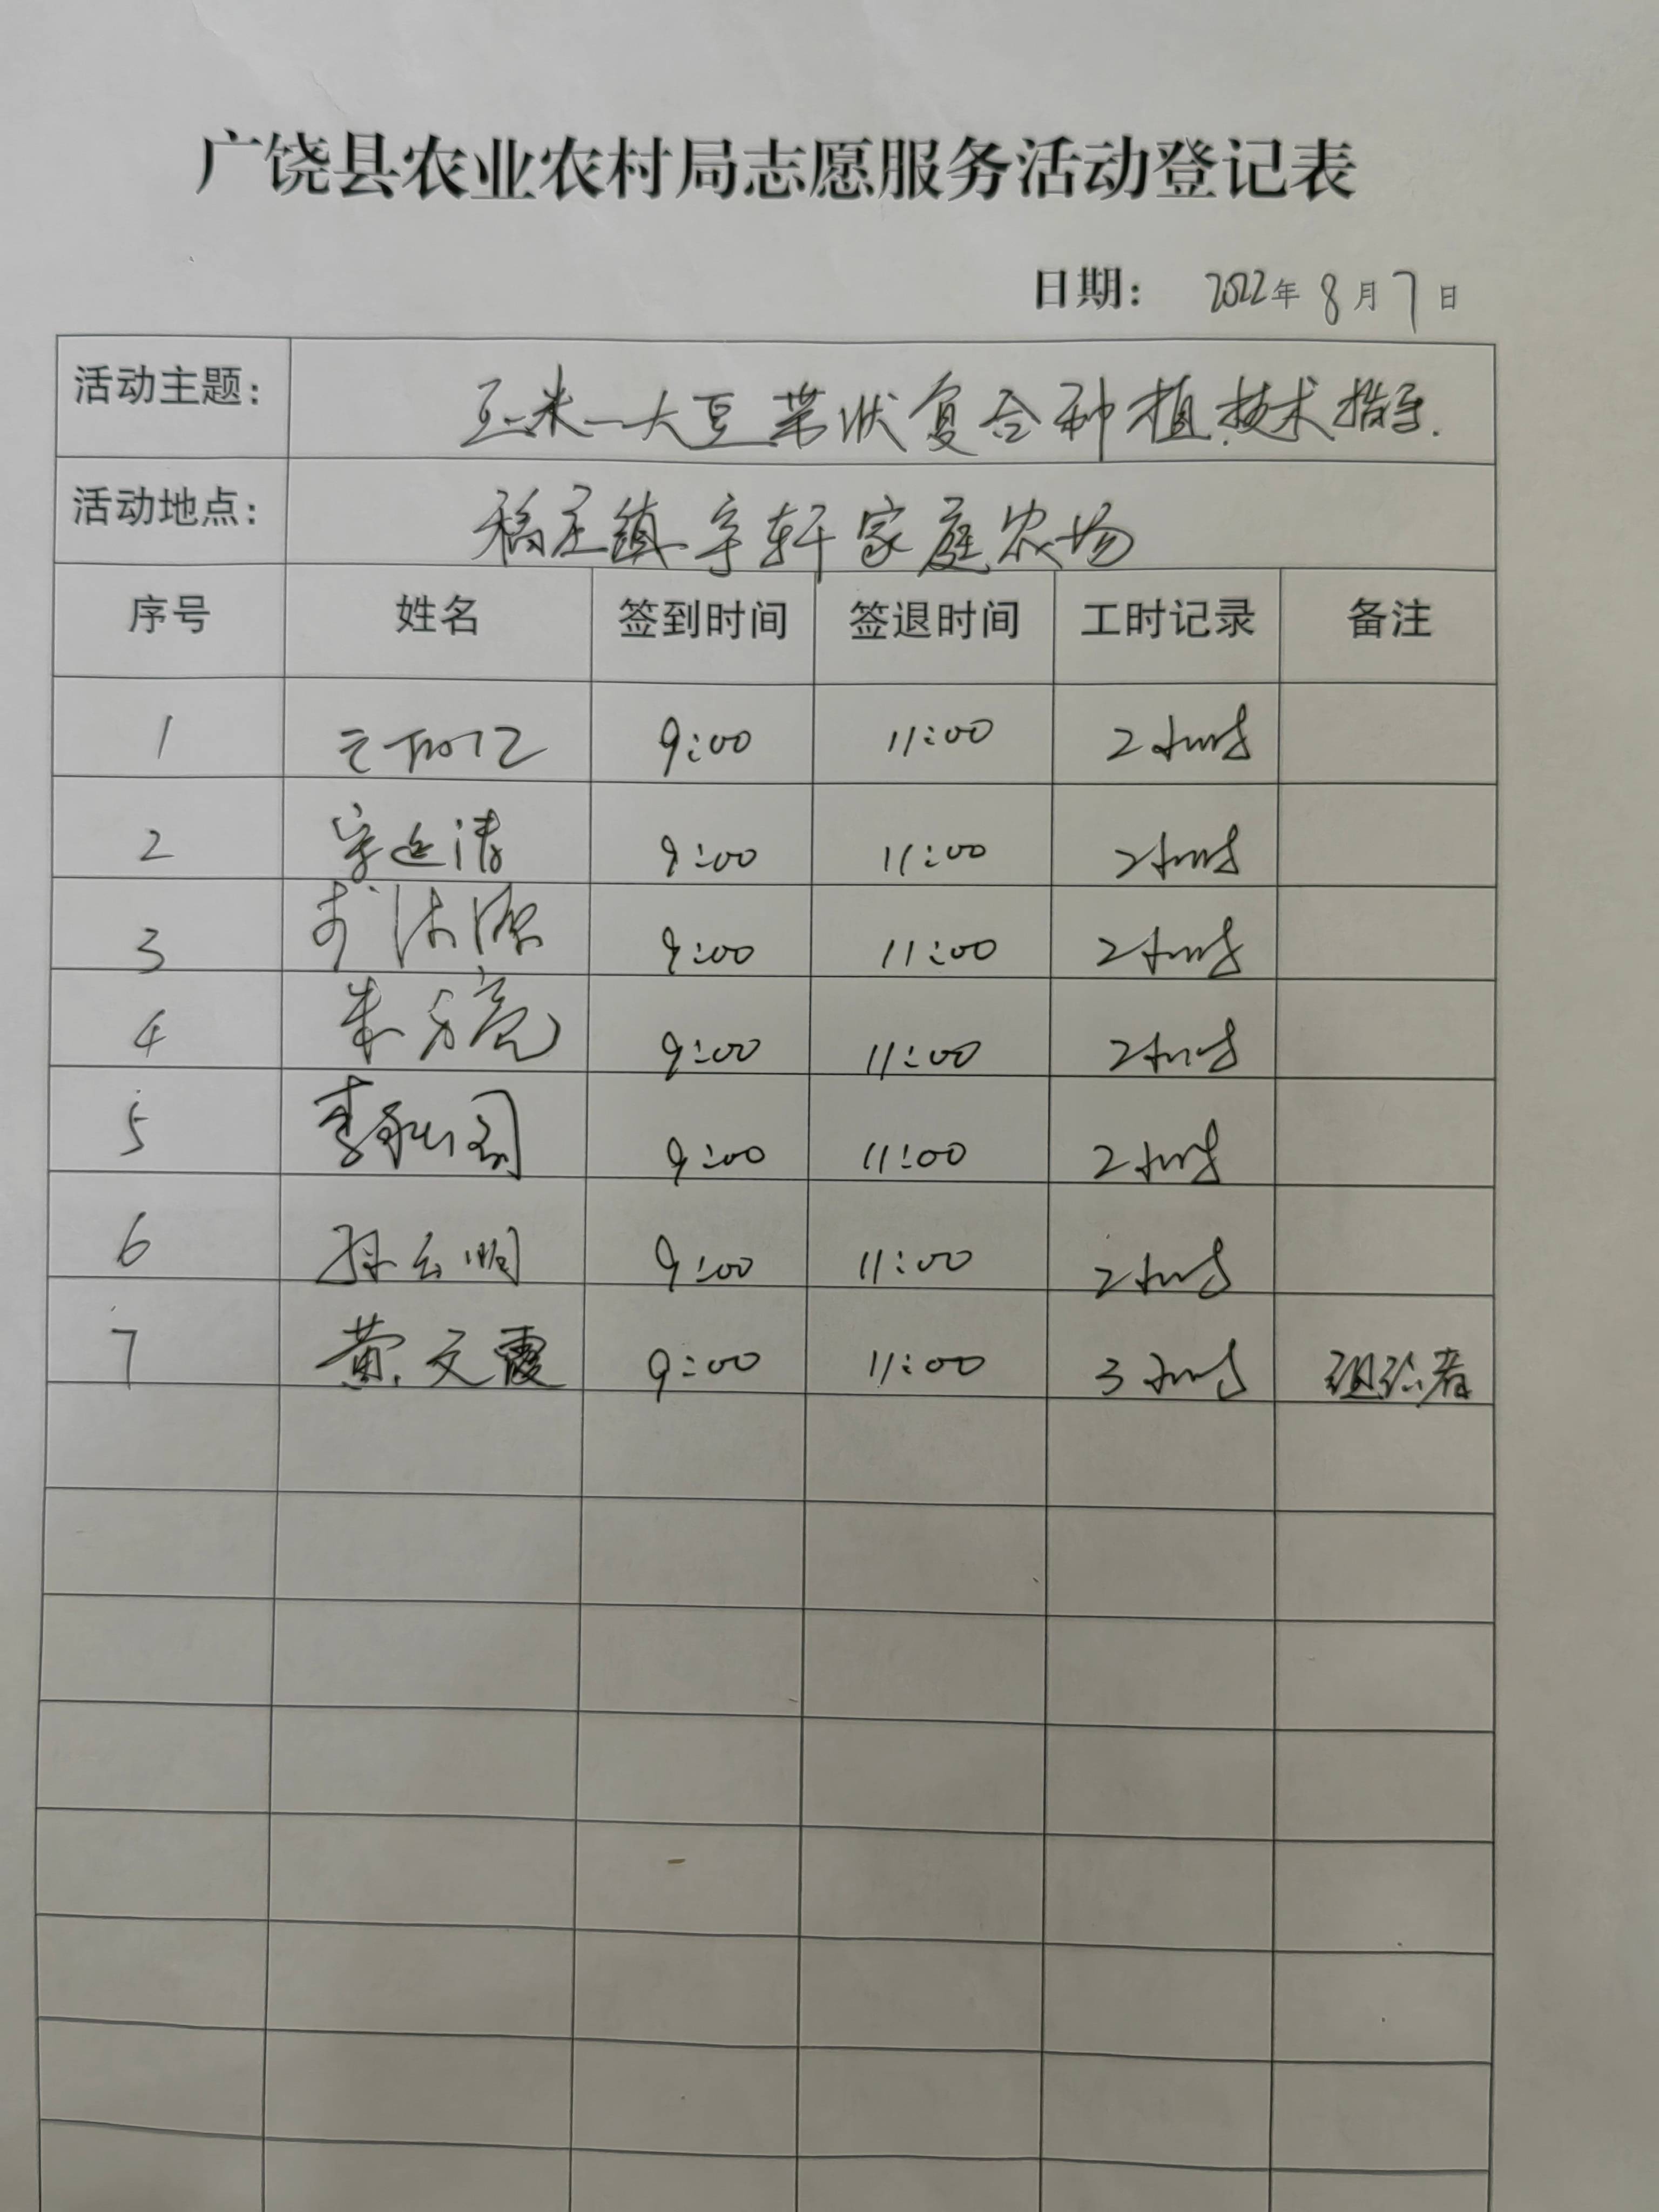 广饶县农业农村局志愿服务活动登记表
日期： 2022年8月7日
活动主题： 玉米—大豆带状复合种植技术指导.
活动地点： 稻庄镇宇轩家庭农场
序号 姓名 签到时间 签退时间 工时记录 备注
1 9:00 11:00 2小时
2 9:00 11:00 2小时
3 9:00 11:00 2小时
4 朱方亮 9:00 11:00 2小时
5 李 9:00 11:00 2小时
6 孙云明 9:00 11:00 2小时
7 黄文霞 9:00 11:00 3小时 组织者